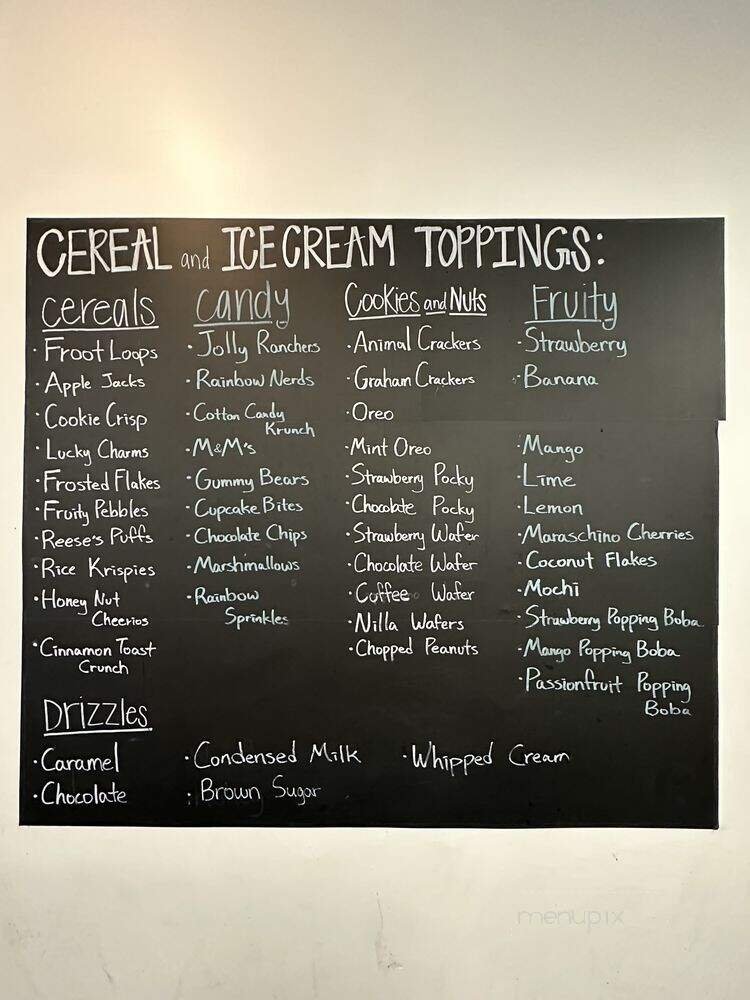 CEREAL and ICE CREAM TOPPINGS:
Cereals
· Froot Loops
· Apple Jacks
· Cookie Crisp
· Lucky Charms
· Frosted Flakes
· Fruity Pebbles
· Reese's Puffs
· Rice Krispies
· Honey Nut
Cheerios
· Cinnamon Toast
Crunch
Candy
· Jolly Ranchers
· Rainbow Nerds
· Cotton Candy
Krunch
· M&M's
· Gummy Bears
· Cupcake Bites
· Chocolate Chips
· Marshmallows
· Rainbow
Sprinkles
Cookies and Nuts
· Animal Crackers
· Graham Crackers
· Oreo
· Mint Oreo
· Strawberry Pocky
· Chocolate Pocky
· Strawberry Wafer
· Chocolate Wafer
· Coffee Wafer
· Nilla Wafers
· Chopped Peanuts
Fruity
· Strawberry
· Banana
· Mango
· Lime
· Lemon
· Maraschino Cherries
· Coconut Flakes
· Mochi
· Strawberry Popping Boba
· Mango Popping Boba
· Passionfruit Popping
Boba
Drizzles
· Caramel
· Chocolate
· Condensed Milk
· Brown Sugar
· Whipped Cream
menupix